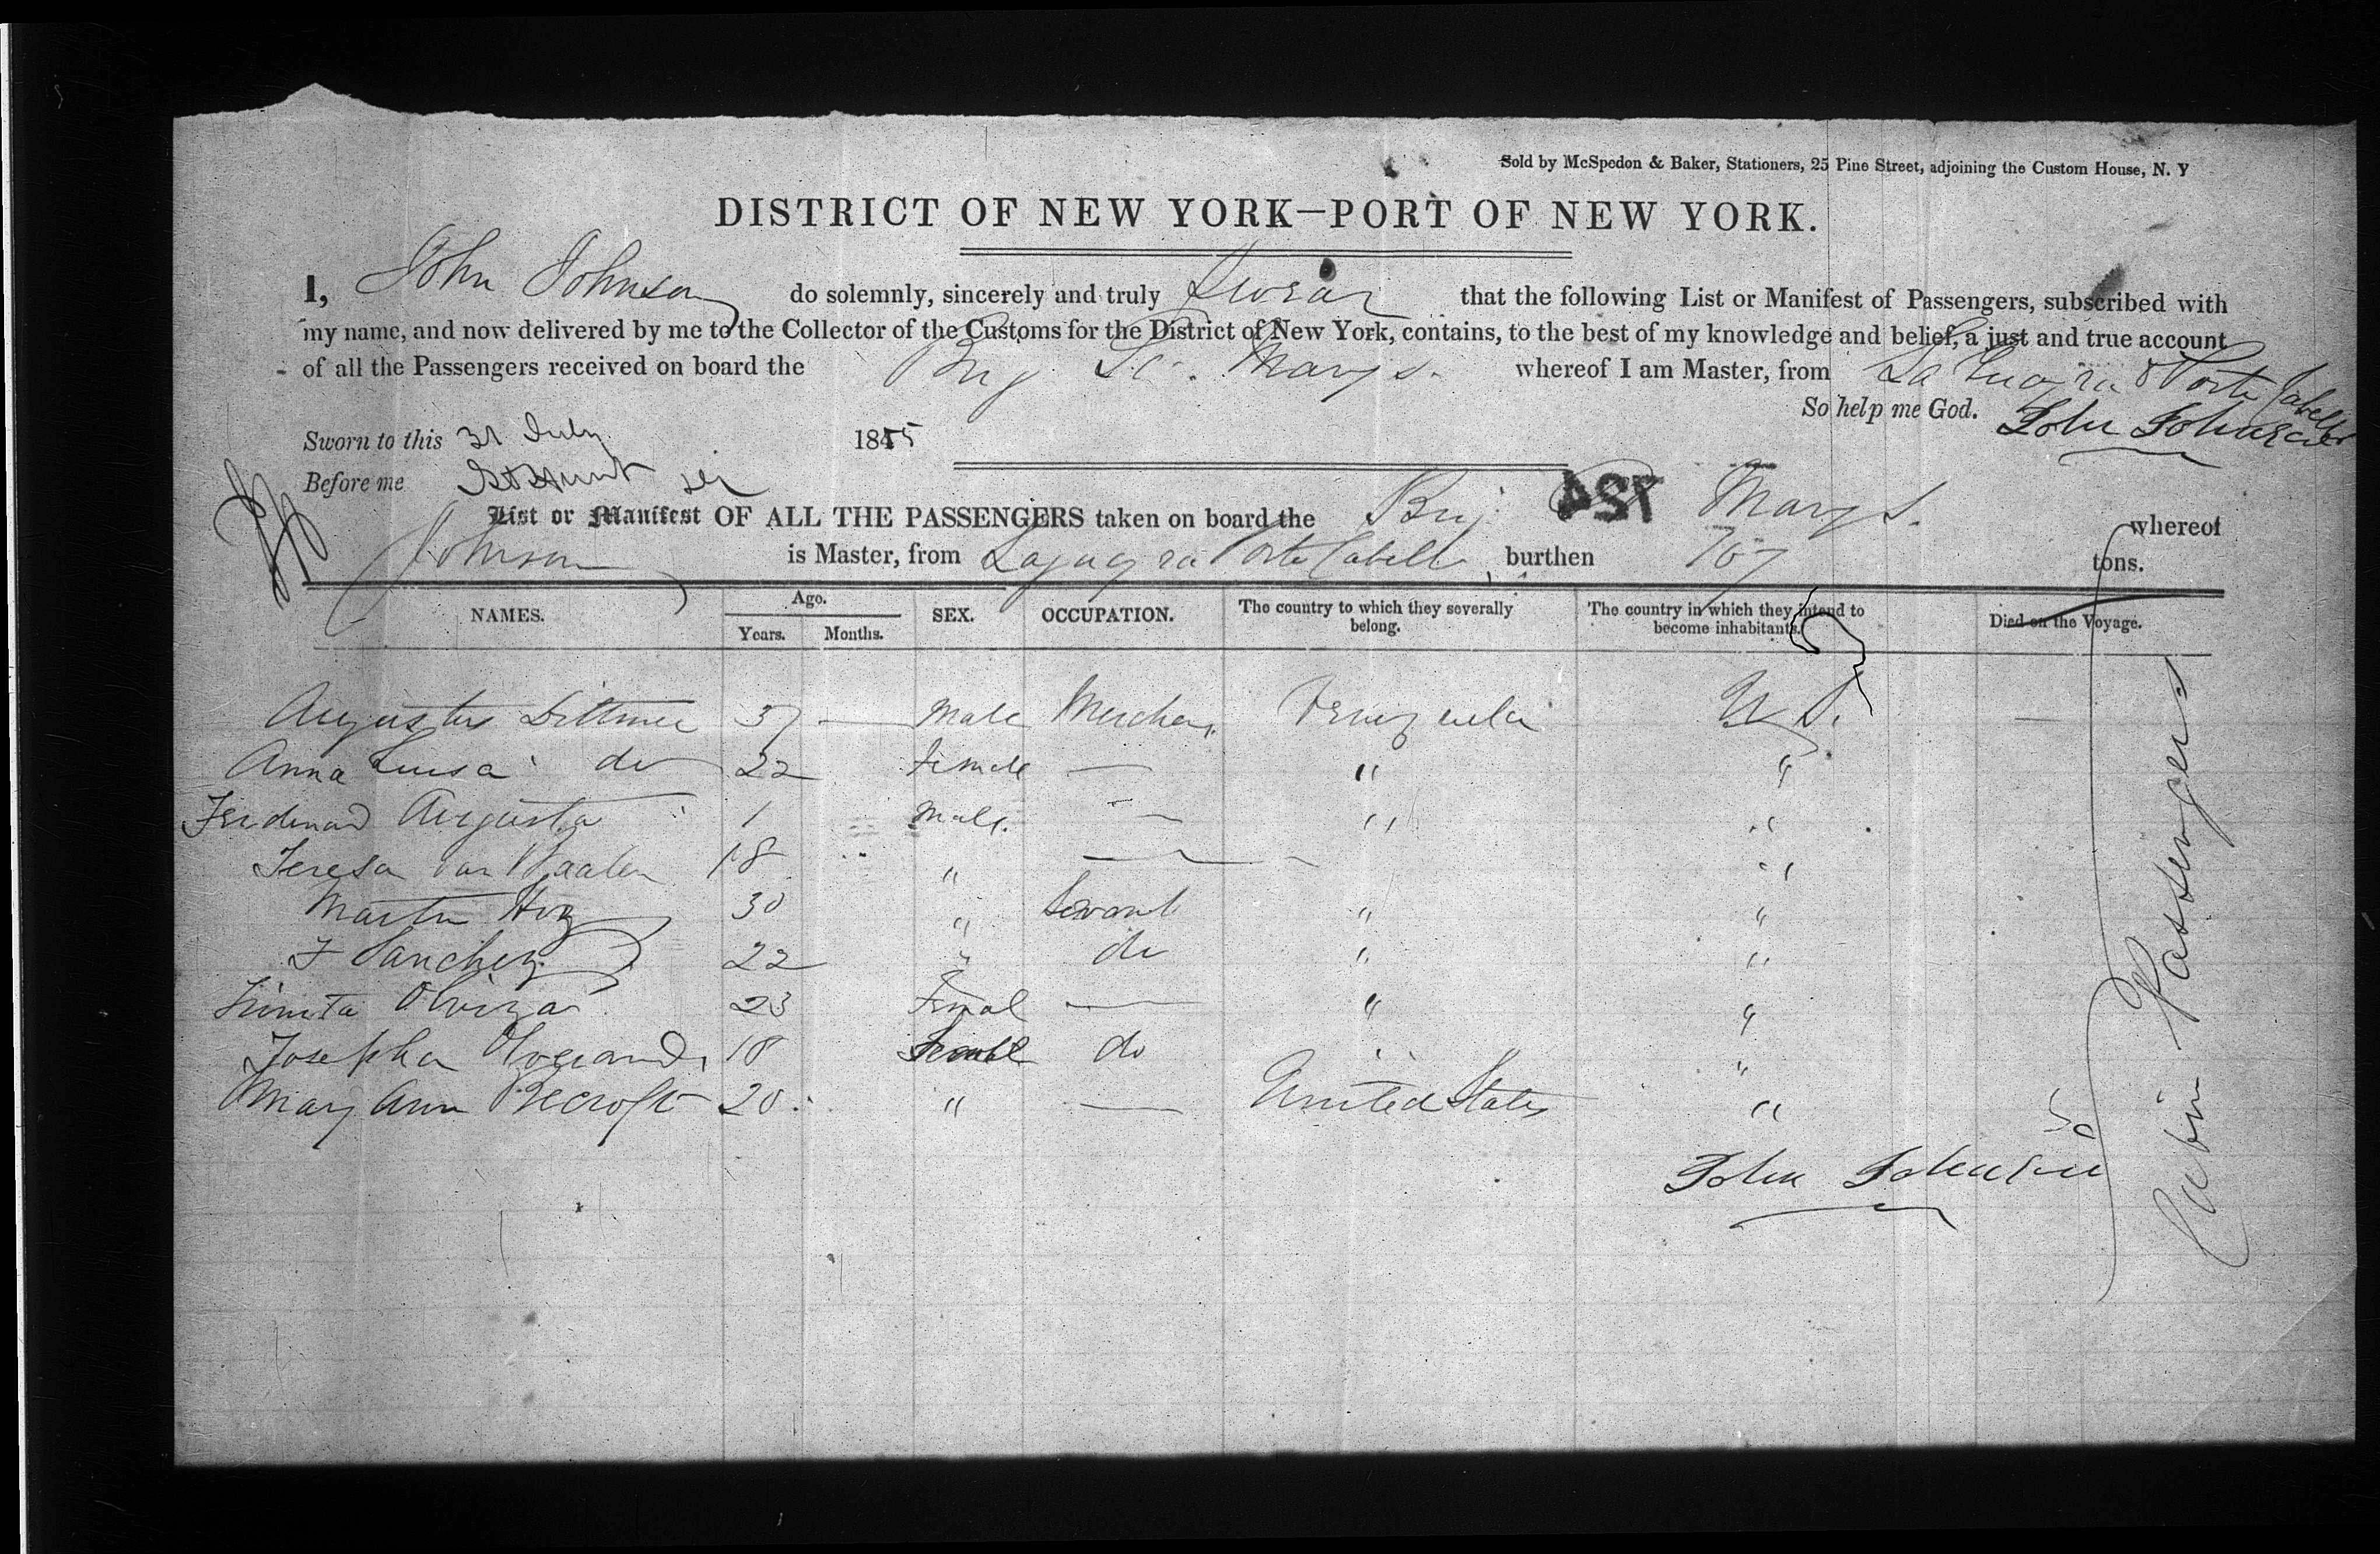 Sold by McSpedon & Baker, Stationers, 25 Pine Street, adjoining the Custom House, N. Y
DISTRICT OF NEW YORK—PORT OF NEW YORK.
I, John Johnson do solemnly, sincerely and truly Swear that the following List or Manifest of Passengers, subscribed with
my name, and now delivered by me to the Collector of the Customs for the District of New York, contains, to the best of my knowledge and belief, a just and true account
of all the Passengers received on board the Brig St. Marys. whereof I am Master, from La Guayra & Porto Cabello
So help me God. John Johnson
Sworn to this 31 July 1855
Before me
List or Manifest OF ALL THE PASSENGERS taken on board the Brig St Marys. whereof
Johnson is Master, from Laguayra Porto Cabello burthen tons.
NAMES. Age. Years. Months. SEX. OCCUPATION. The country to which they severally belong. The country in which they intend to become inhabitants. Died on the Voyage.
Augustus Dittmer 37 — Male Merchant Venezuela U S. —
Anna Luisa do 22 Female — " "
Ferdinand Augusta 1 Male. — " "
Teresa Van 18 " — "
Martin 30 " Servant " "
F Sanchez 22 " do " "
23 Femal — " "
Josepha 18 do "
Mary Ann Becroft 20 " — United States "
Cabin Passengers
John Johnson